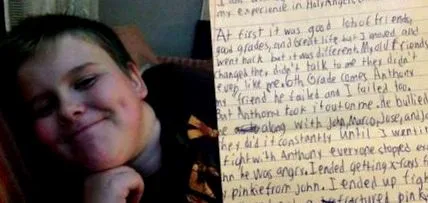 my experience in Holy Angels
At first it was good lots of friends,
good grades, and great life but I moved and
went back but it was different. My old friends
changed they didn't talk to me they didn't
even like me. 6th Grade comes Anthony
my friend he failed and I failed too.
But Anthony took it out on me he bullied
me along with John, Marco, Jose, and
they did it constantly until I
fight with Anthony everyone stopped
John he was angry. I ended getting x-rays
pinkie from John. I ended up
fractured